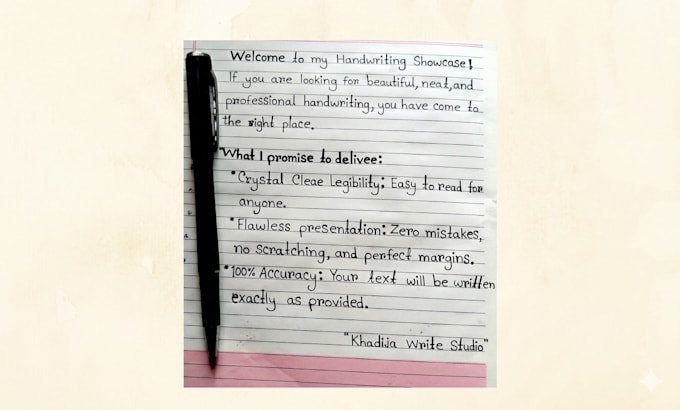 Welcome to my Handwriting Showcase!
If you are looking for beautiful, neat, and
professional handwriting, you have come to
the right place.
What I promise to delivee:
•Crystal Cleae Legibility: Easy to read for
anyone.
•Flawless presentation: Zero mistakes,
no scratching, and perfect margins.
•100% Accuracy: Your text will be written
exactly as provided.
"Khadija Write Studio"